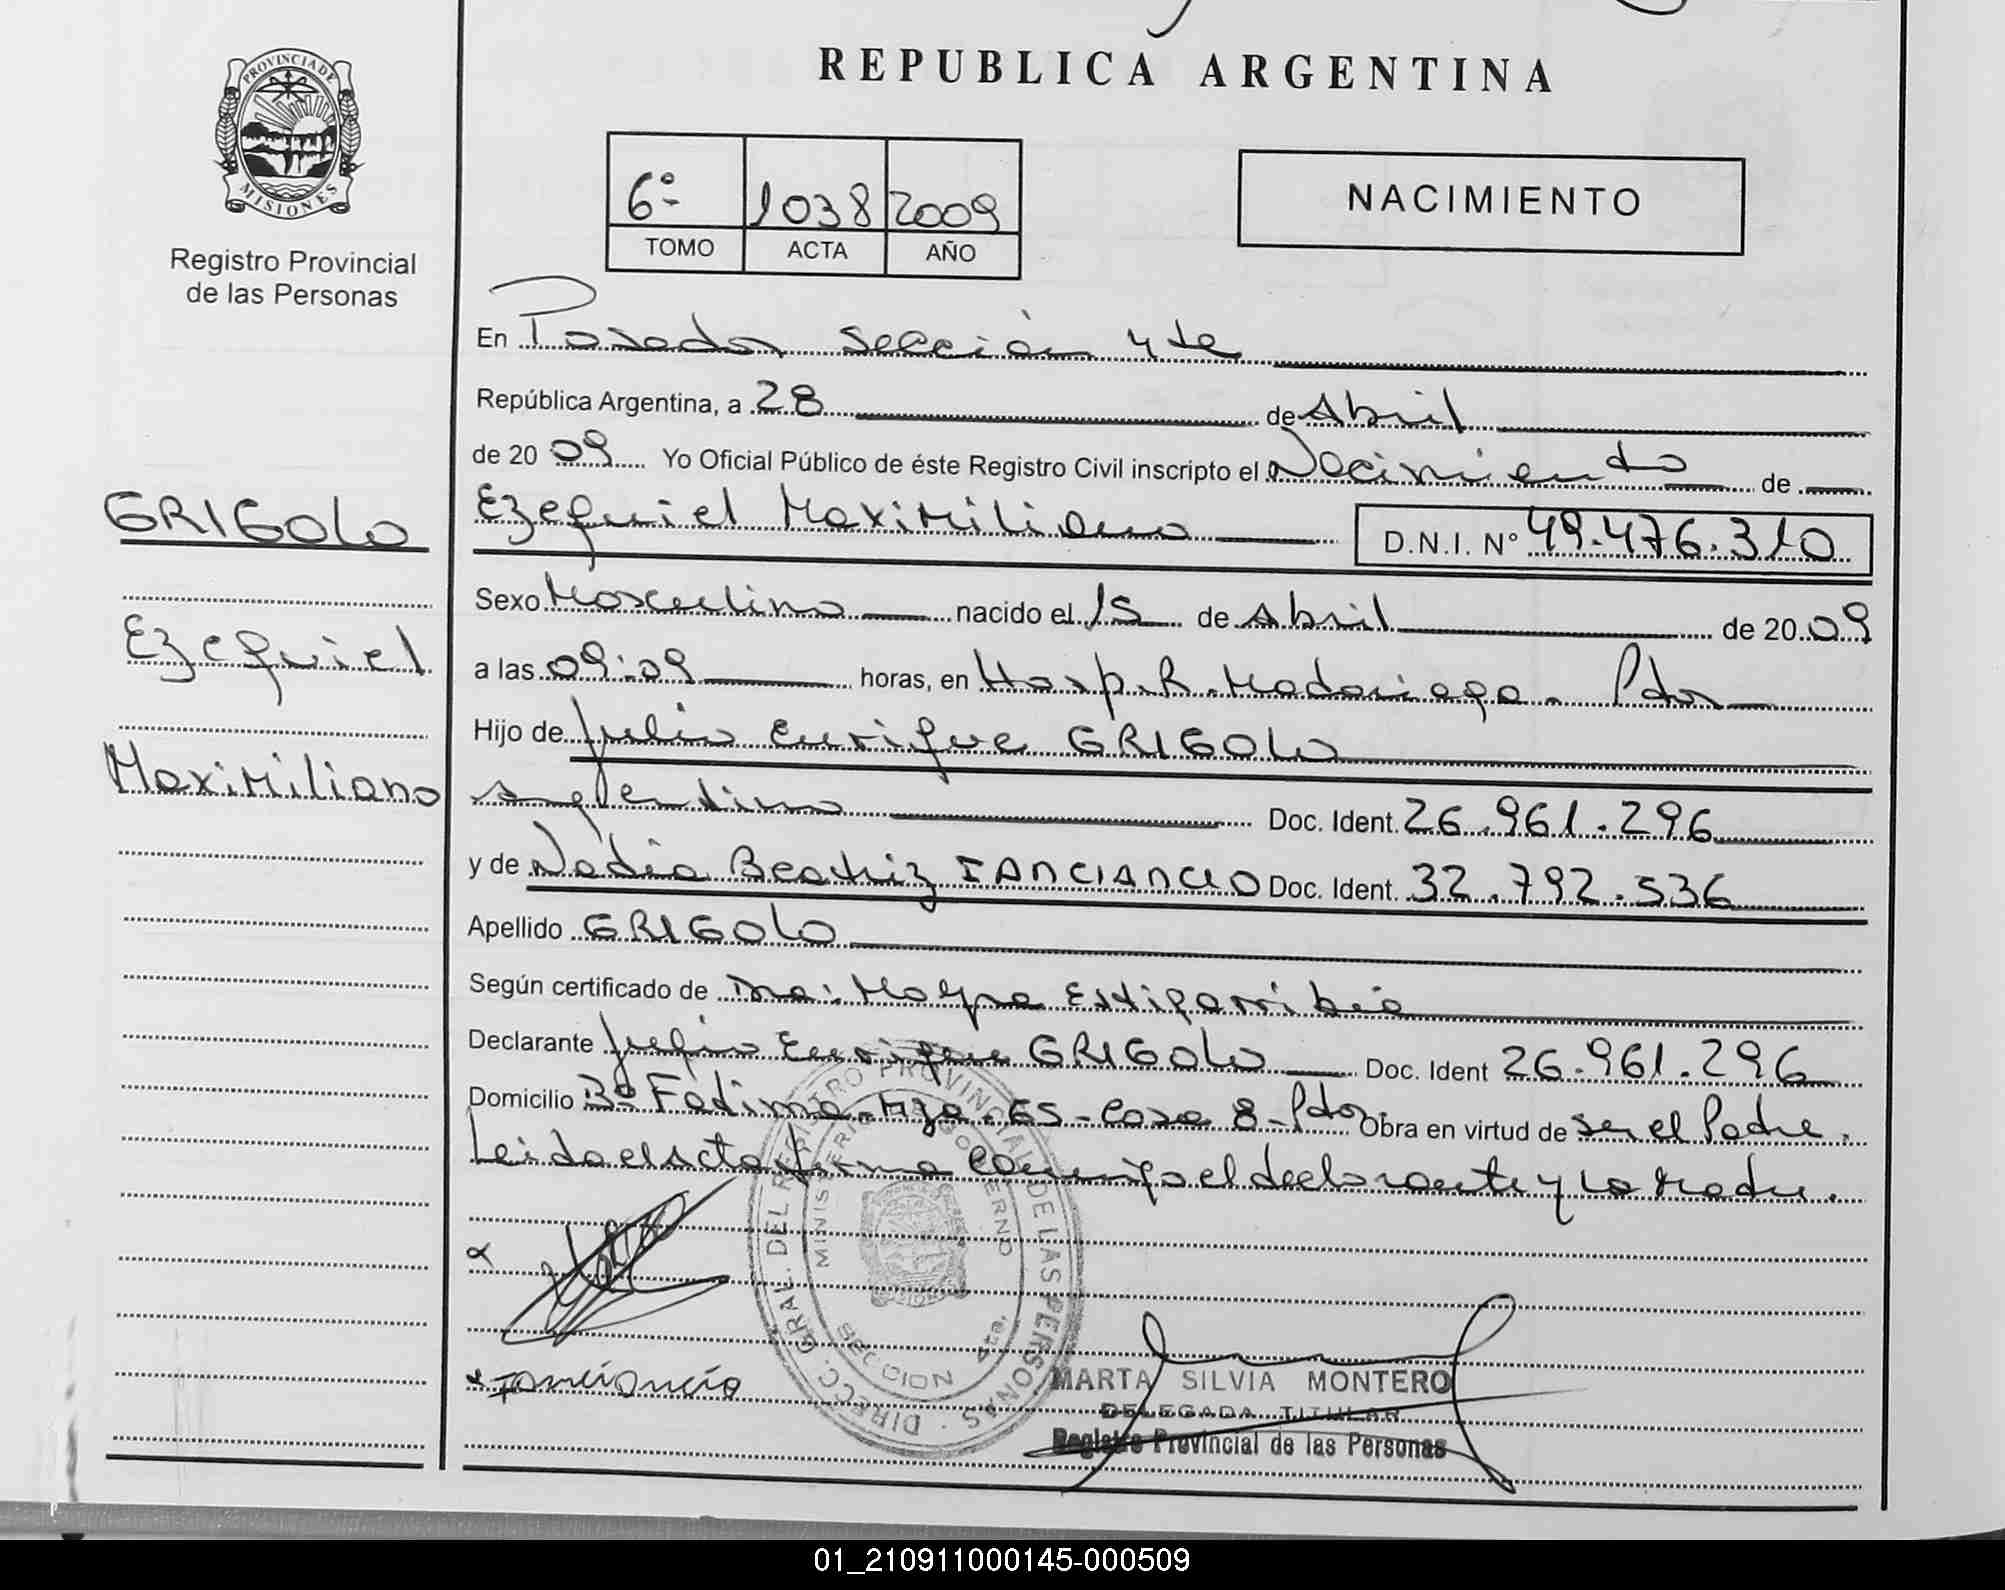 REPUBLICA ARGENTINA
PROVINCIA DE
MISIONES
Registro Provincial
de las Personas
6º 1038 2009
TOMO ACTA AÑO
NACIMIENTO
En Posadas sección 4ta
República Argentina, a 28 de Abril
de 2009 Yo Oficial Público de éste Registro Civil inscripto el Nacimiento de
Ezequiel Maximiliano D.N.I. N° 49.476.310
GRIGOLO
Ezequiel
Maximiliano
Sexo Masculino nacido el 15 de Abril de 2009
a las 09:09 horas, en Hosp. R. Madariaga - Pdas
Hijo de Julio Enrique GRIGOLO
argentino Doc. Ident. 26.961.296
y de Nadia Beatriz FANCIANCIO Doc. Ident. 32.792.536
Apellido GRIGOLO
Según certificado de Dra: Mayra Estigarribia
Declarante Julio Enrique GRIGOLO Doc. Ident 26.961.296
Domicilio Bº Fatima - Mza - 65 - Casa 8 - Pdas Obra en virtud de ser el Padre.
Leida el Acta firma conmigo el declarante y la Madre.
DIRECC. GRAL. DEL REGISTRO PROVINCIAL DE LAS PERSONAS
MINISTERIO GOBIERNO
SECCION 4ta.
MARTA SILVIA MONTERO
DELEGADA TITULAR
Registro Provincial de las Personas
01_210911000145-000509